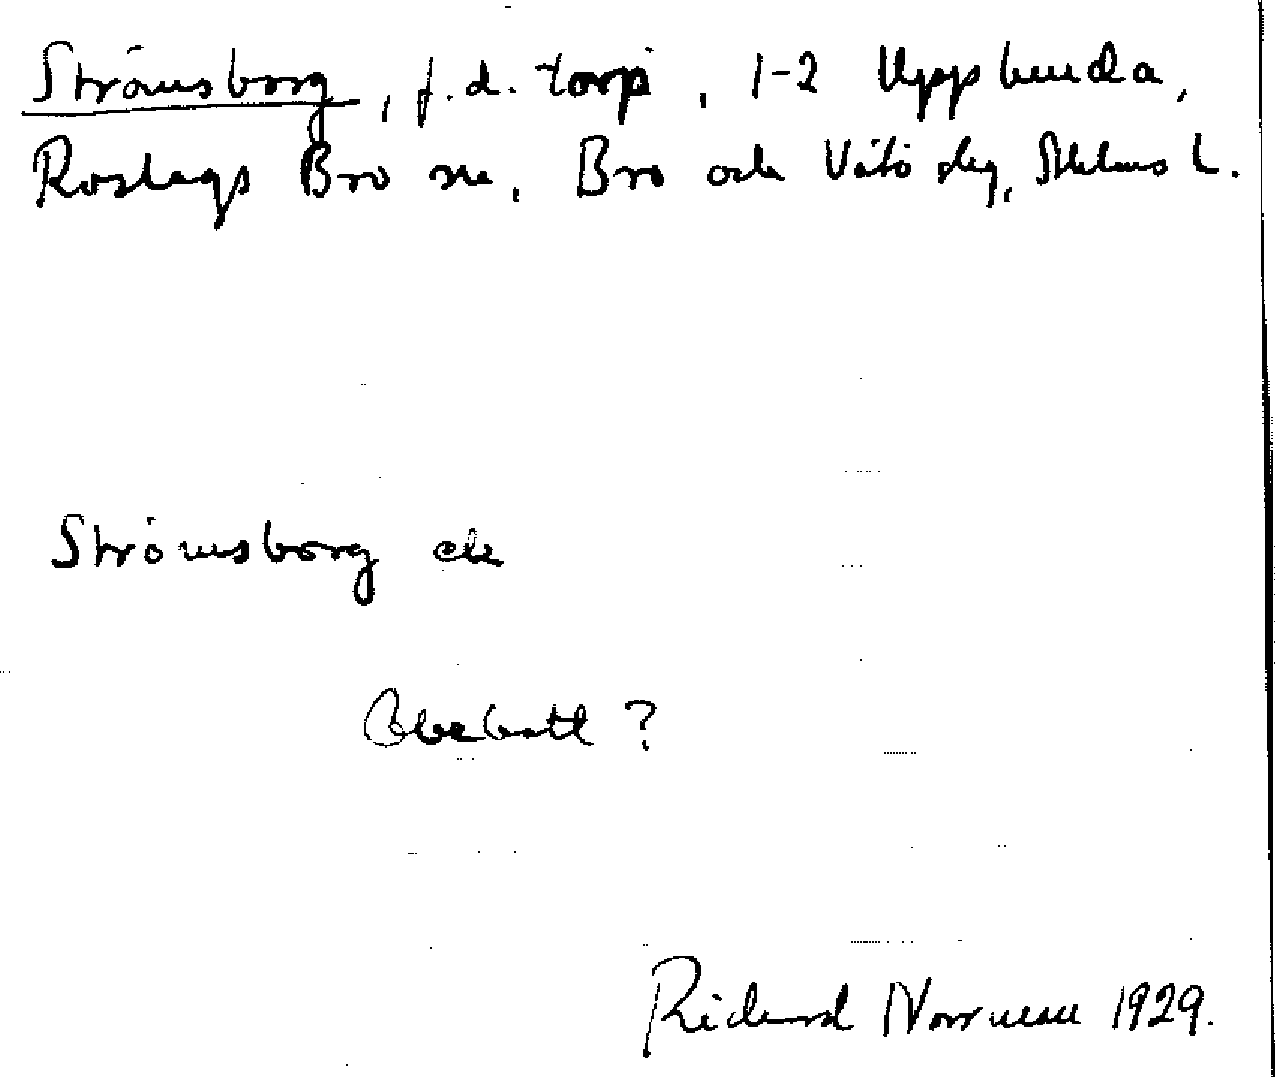 Strömsborg, f.d. torp, 1-2 Uppbunda,
Roslags Bro sn, Bro och Vätö skg, Sthlms L.
Strömsborg
Obebott?
Richard Norrman 1929.